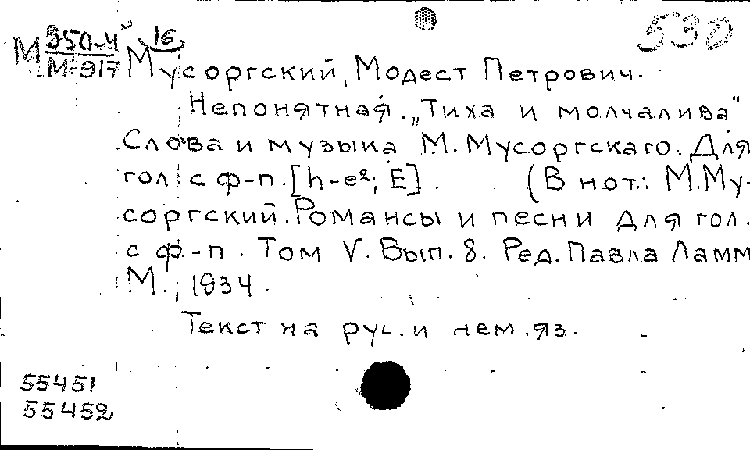 530
М 950-4 16
М-917 Мусоргский, Модест Петрович.
Непонятная. „Тиха и молчалива"
Слова и музыка М. Мусоргскаго. Для
гол. с ф-п. [h-e²; E]. (В нот: М. Му-
соргский. Романсы и песни для гол.
с ф-п. Том V. Вып. 8. Ред. Павла Ламм
М., 1934.
Текст на рус. и нем. яз.
55451
55452